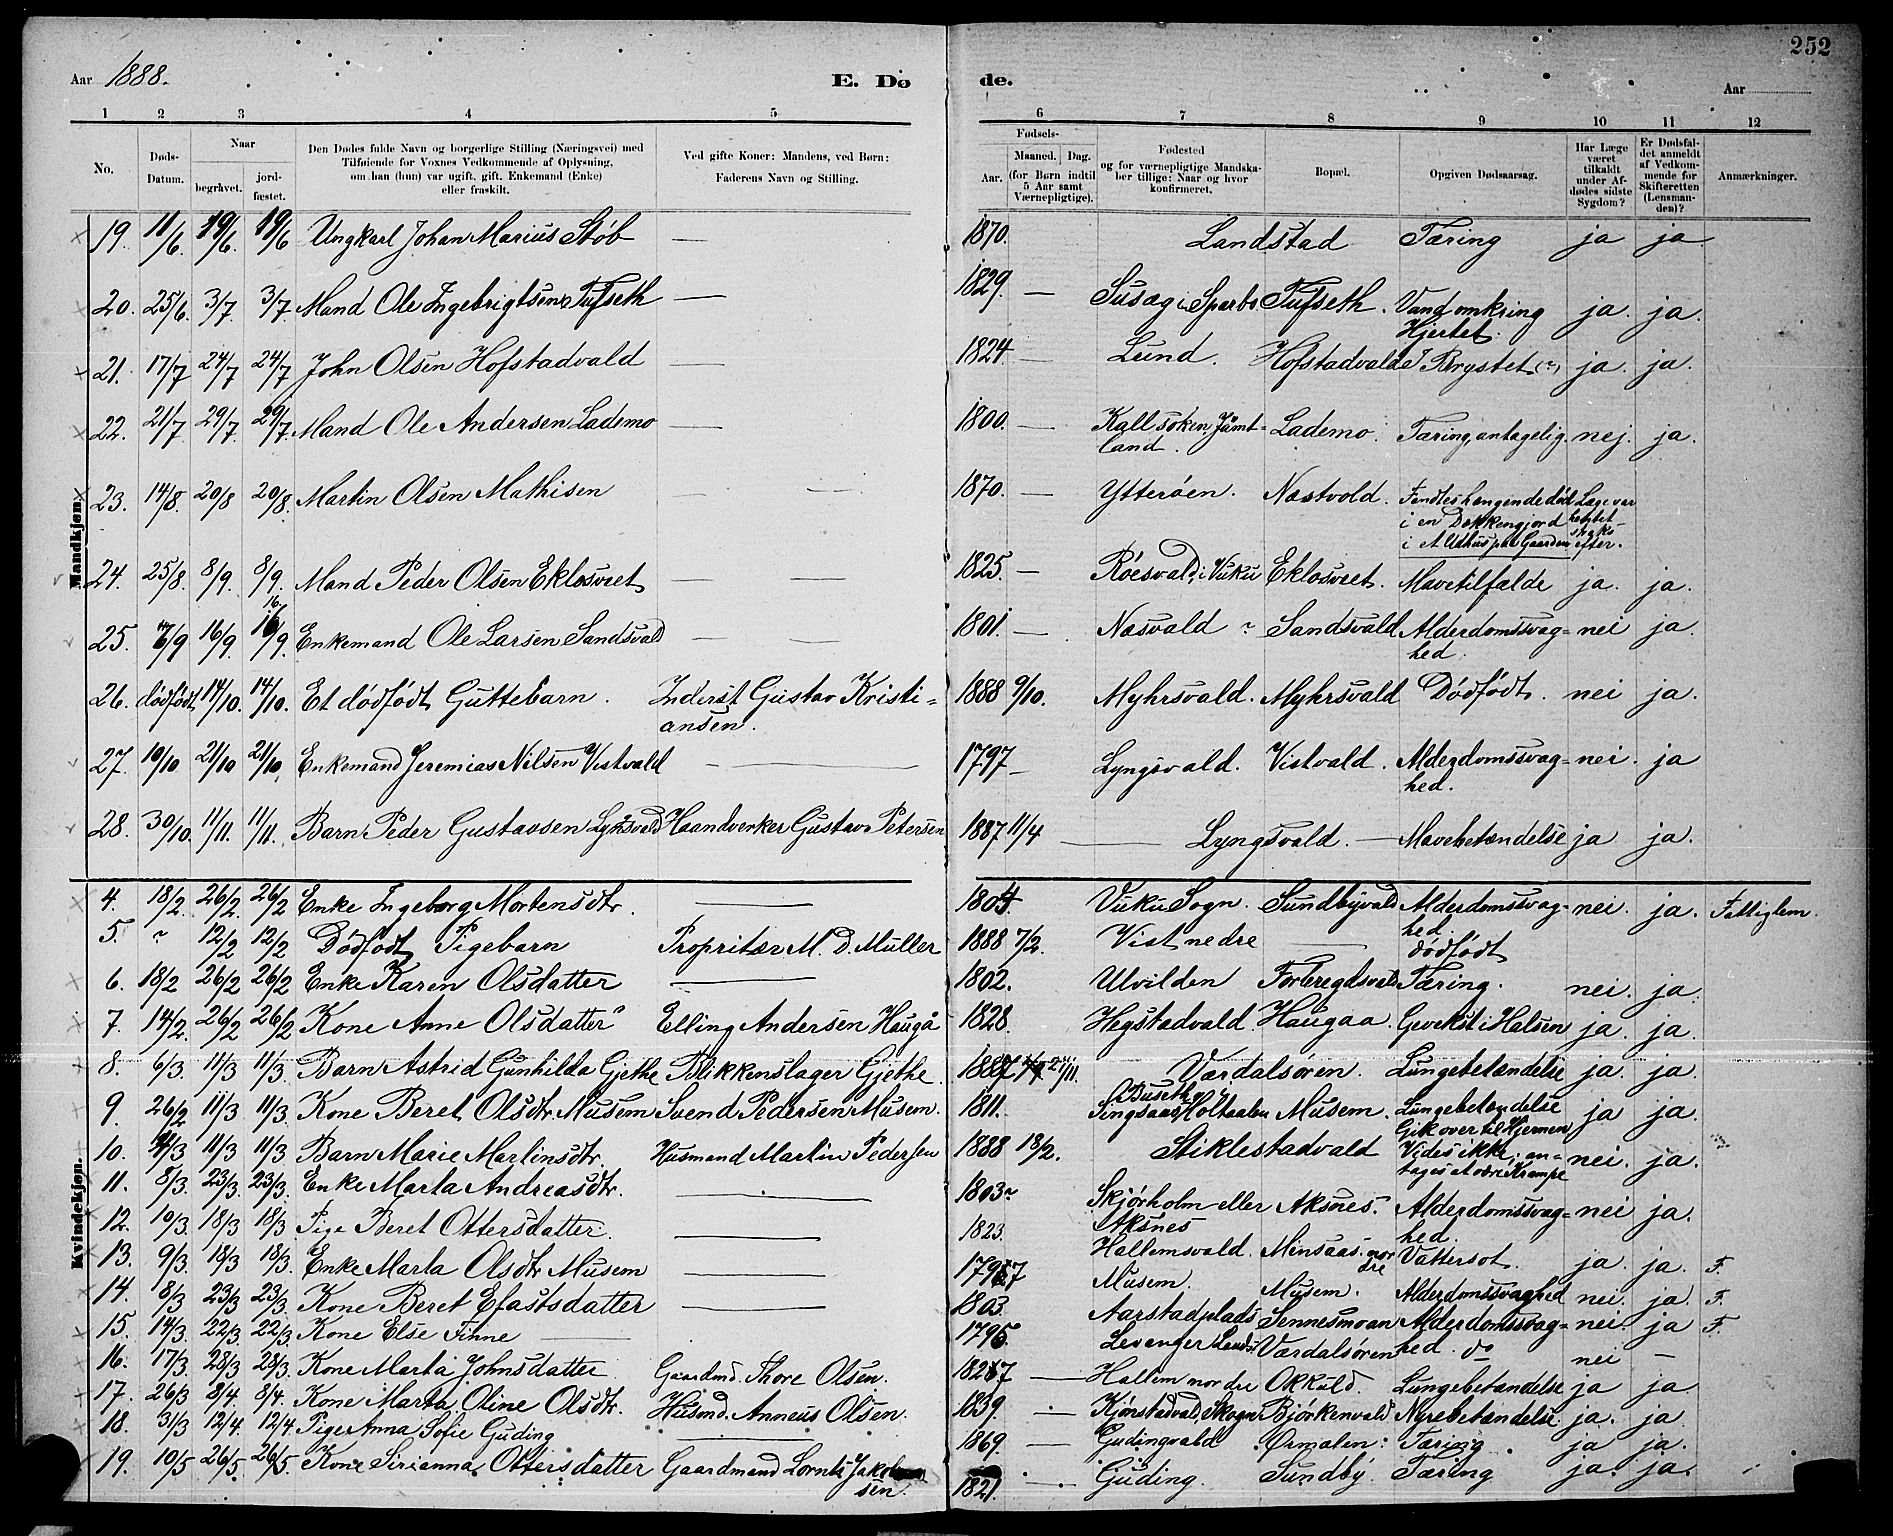 252
Aar 1888. E. Dø de. Aar
1 2 3 4 5 6 7 8 9 10 11 12
No. Døds-Datum. Naar begravet. jord-fæstet. Den Dødes fulde Navn og borgerlige Stilling (Næringsvei) med Tilføiende for Voxnes Vedkommende af Oplysning, om han (hun) var ugift, gift, Enkemand (Enke) eller fraskilt. Ved gifte Koner: Mandens, ved Børn: Faderens Navn og Stilling. Fødsels- Aar. Maaned. Dag. (for Børn indtil 5 Aar samt Værnepligtige). Fødested og for værnepligtige Mandskaber tillige: Naar og hvor konfirmeret. Bopæl. Opgiven Dødsaarsag. Har Læge været tilkaldt under Afdødes sidste Sygdom? Er Dødsfaldet anmeldt af Vedkommende for Skifteretten (Lensmanden)? Anmærkninger.
Mandkjøn.
19. 11/6. 19/6. 19/6 Ungkarl Johan Marius Stöb — 1870. Landstad Tæring ja ja
20. 25/6. 3/7. 3/7. Mand Ole Ingebrigtsen Tufseth — 1829. — Susæg i Sparbo Tufseth. Vand omkring Hjertet. ja. ja.
21. 17/7 24/7 24/7 John Olsen Hofstadvald — 1824 — Lund. Hofstadvald I Brystet (?) ja. ja.
22. 21/7 29/7 29/7 Mand Ole Andersen Lademo — 1800. — Kallsoken Jämt=land. Lademo. Tæring antagelig. nej. ja.
23. 14/8. 20/8 20/8. Martin Olsen Mathisen — — 1870. — Ytteröen. Næstvold. Fandtes hængende død i en Dækkengjord i et Udhus paa Gaarden Læge var hentet straks efter.
24. 25/8. 8/9. 8/9. Mand Peder Olsen Eklosveet — — 1825. — Röesvald i Vuku Eklosveet. Mavetilfælde ja. ja.
25. 7/9 16/9. 16/9. 16 Enkemand Ole Larsen Sandsvald — — 1801. — Næsvald ? Sandsvald Alderdomssvag=hed. nei ja.
26. dødfødt 14/10. 14/10. Et dødfødt Guttebarn. Inderst Gustav Kristi=ansen. 1888 9/10. Myhrsvald. Myhrsvald Dødfødt. nei ja.
27. 10/10. 21/10 21/10. Enkemand Jeremias Nilsen Vistvald — 1797 — Lyngsvald. Vistvald. Alderdomssvag=hed. nei. ja
28. 30/10. 11/11. 11/11. Barn Peder Gustavsen Lyngsvald Haandverker Gustav Petersen 1887 11/4 — Lyngsvald. — Mavebetændelse ja ja.
Kvindekjøn.
4. 18/2. 26/2. 26/2 Enke Ingeborg Mortensdtr. — 1804. Vuku Sogn. Sundbyvald Alderdomssvag=hed. nei. ja. Fattiglem.
5. ? 12/2 12/2 Dødfødt Pigebarn Propritær M. D. Müller 1888 7/2. Vist nedre — dödfödt
6. 18/2 26/2 26/2 Enke Karen Olsdatter — 1802. Ulvilden Forbregdsvald Tæring. nei. ja.
7. 14/2. 26/2 26/2 Kone Anne Olsdatter Elling Andersen Haugå 1828. Hegstadvald Haugaa. Gevekst i Halsen ja. ja.
8. 6/3 11/3 11/3. Barn Astrid Gunhilda Gjethe Blikkenslager Gjethe. 1887 21/11. Værdalsøren. Lungebetændelse ja. ja.
9. 26/2 11/3 11/3. Kone Beret Olsdtr. Musem Svend Pedersen Musem. 1811. Duseth Singsaas Holtaalen Musem. Lungebetændelse Gik over til Hjernen ja ja.
10. 4/3 11/3 11/3 Barn Marie Martinsdtr. Husmand Martin Pedersen 1888 13/2. Stiklestadvald Vides ikke; an-tages at være Krampe nei. ja.
11. 8/3. 23/3. 23/3. Enke Marta Andreasdtr. — 1803 ? Skjørholm eller Aksnes Aksnes. Alderdomssvag=hed. nei ja.
12. 10/3. 18/3 18/3 Pige Beret Ottersdatter. — 1823. Hallemsvald. Minsaas nordre Vattersot. ja. ja. F.
13. 9/3. 18/3 18/3. Enke Marta Olsdtr. Musem — 1797 Musem. Musem. Alderdomssvaghed nei. ja. F.
14. 8/3 23/3 23/3. Kone Beret Efastsdatter — 1803. Aarstadplads Sennesmoan Alderdomssvag=hed. nei. ja F.
15. 14/3. 22/3 22/3. Kone Else Finne — 1795. Levanger Lands. Værdalsøren do nei —
16. 17/3. 28/3 28/3. Kone Marta Johnsdatter Gaardmd. Thore Olsen. 1827 — Hallem nordre Okkuld. Lungebetændelse ja ja
17. 26/3 8/4. 8/4. Kone Marta Oline Olsdtr. Husmd. Anneus Olsen. 1839. — Kjørstadvald, Skogn Bjørkenvald Nyrebetændelse ja. ja
18. 31/3 12/4. 12/4. Pige Anna Sofie Guding — 1869 — Gudingvald Ørmelen. Tæring ja ja.
19. 10/5 26/5. 26/5. Kone Sirianna Ottersdatter Gaardmand Lornts Jakobsen. 1821. — Guding. Sundby. Tæring ja. ja.